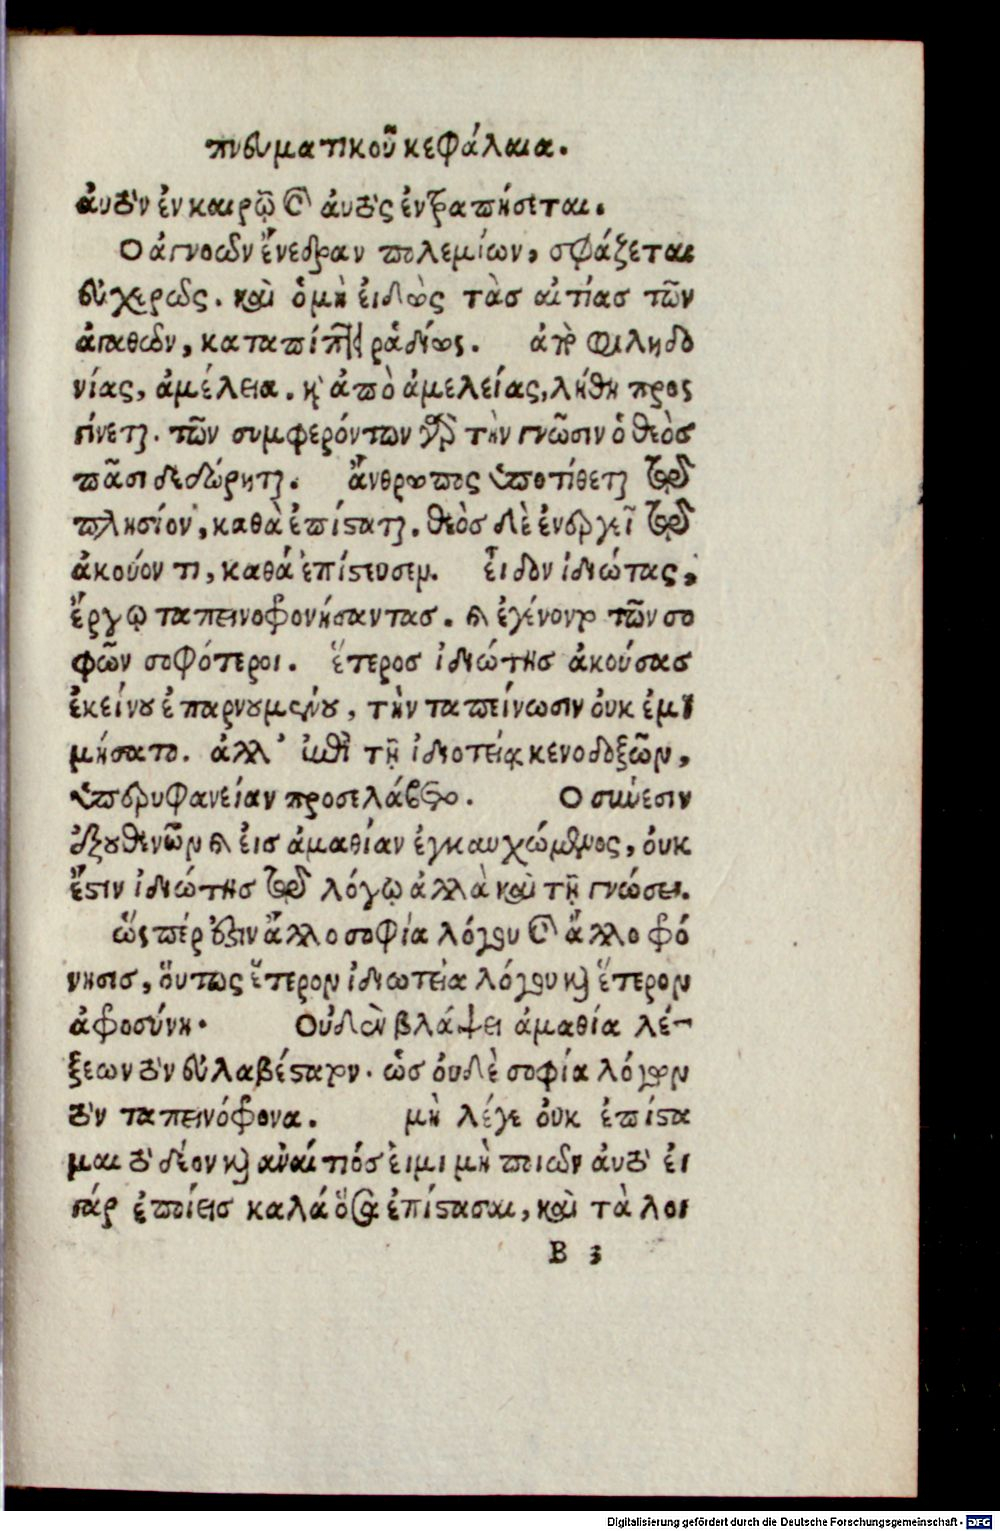 πνευματικοῦ κεφάλαια.
ἀυτὸν ἐν καιρῷ καὶ ἀυτὸς ἐντραπήσεται.
Ο ἀγνοῶν ἔνεδραν πολεμίων, σφάζεται
εὐχερῶς. καὶ ὁ μὴ ἐιδὼς τὰσ αἰτίασ τῶν
ἀπαθῶν, καταπίπτει ῥᾳδίως. ἀπὸ φιληδο
νίας, ἀμέλεια. κ̀ ἀπὸ ἀμελείας, λήθη προς
γίνεται. τῶν συμφερόντων γὰρ τὴν γνῶσιν ὁ θεὸσ
πᾶσι δεδώρηται. ἄνθρωπος ὑποτίθεται τῷ
πλησίον, καθὰ ἐπίσταται. θεὸσ δὲ ἐνεργεῖ τῷ
ἀκούοντι, καθὰ ἐπίστευσεν. ἶιδον ἰδιώτας,
ἔργῳ ταπεινοφρονήσαντασ. καὶ ἐγένοντο τῶν σο
φῶν σοφότεροι. ἕτεροσ ἰδιώτησ ἀκούσασ
ἐκείνου ἐπαρνουμένου, τὴν ταπείνωσιν ὀυκ ἐμι
μήσατο. ἀλλ᾽ ἐπὶ τῇ ἰδιοτείᾳ κενοδοξῶν,
ὑπερυφανείαν προσελάβετο. Ο σύνεσιν
ἐξουθενῶν καὶ ἐισ ἀμαθίαν ἐγκαυχώμενος, ὀυκ
ἔστιν ἰδιώτησ τῷ λόγῳ ἀλλὰ καὶ τῇ γνώσει.
ὥς πέρ ἐστιν ἄλλο σοφία λόγου καὶ ἄλλο φρό
νησισ, ὅυτως ἕτερον ἰδιωτεία λόγου καὶ ἕτερον
ἀφροσύνη. Ουδὲν βλάψει ἀμαθία λέ-
ξεων τὸν εὐλαβέστατον. ὡσ ὀυδὲ σοφία λόγων
τὸν ταπεινόφρονα. μὴ λέγε ὀυκ ἐπίστα
μαι τὸ δέον καὶ ἀναίτιόσ ἐιμι μὴ ποιῶν ἀυτὸ ἐι
γάρ ἐποίεισ καλά ὅσα ἐπίστασαι, καὶ τὰ λοι
B 3
Digitalisierung gefördert durch die Deutsche Forschungsgemeinschaft - DFG